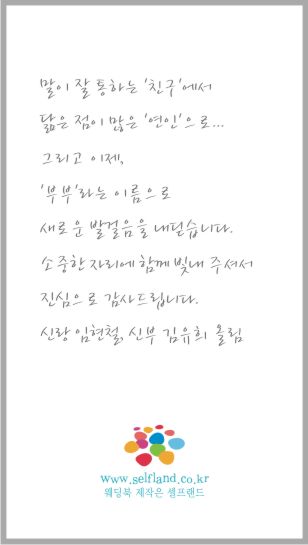 말이 잘 통하는 '친구'에서
닮은 점이 많은 '연인'으로...
그리고 이제,
'부부'라는 이름으로
새로운 발걸음을 내딛습니다.
소중한 자리에 함께 빛내 주셔서
진심으로 감사드립니다.
신랑 임현철, 신부 김유희 올림
www.selfland.co.kr
웨딩북 제작은 셀프랜드